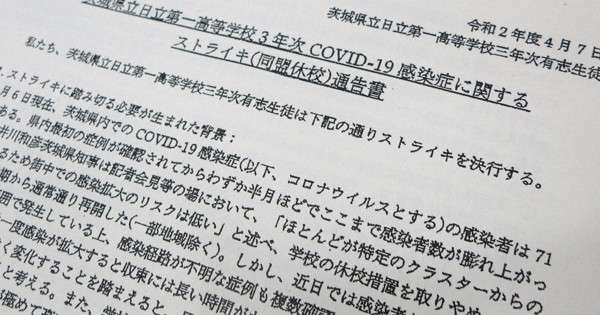 令和2年度4月7日
茨城県立日立第一高等学校三年次有志生徒
茨城県立日立第一高等学校3年次 COVID-19 感染症に関する
ストライキ(同盟休校)通告書
私たち、茨城県立日立第一高等学校三年次有志生徒は下記の通りストライキを決行する。
ストライキに踏み切る必要が生まれた背景：
月6日現在、茨城県内での COVID-19 感染症(以下、コロナウイルスとする)の感染者は 71
ある。県内最初の症例が確認されてからわずか半月ほどでここまで感染者数が膨れ上がっ
井川和彦茨城県知事は記者会見等の場において、「ほとんどが特定のクラスターからの
るため街中での感染拡大のリスクは低い」と述べ、学校の休校措置を取りやめ
期から通常通り再開した(一部地域除く)。しかし、近日では感染者
囲で発生している上、感染経路が不明な症例も複数確
一度感染が拡大すると収束には長い時間が
く変化することを踏まえると、
と考える。また、学